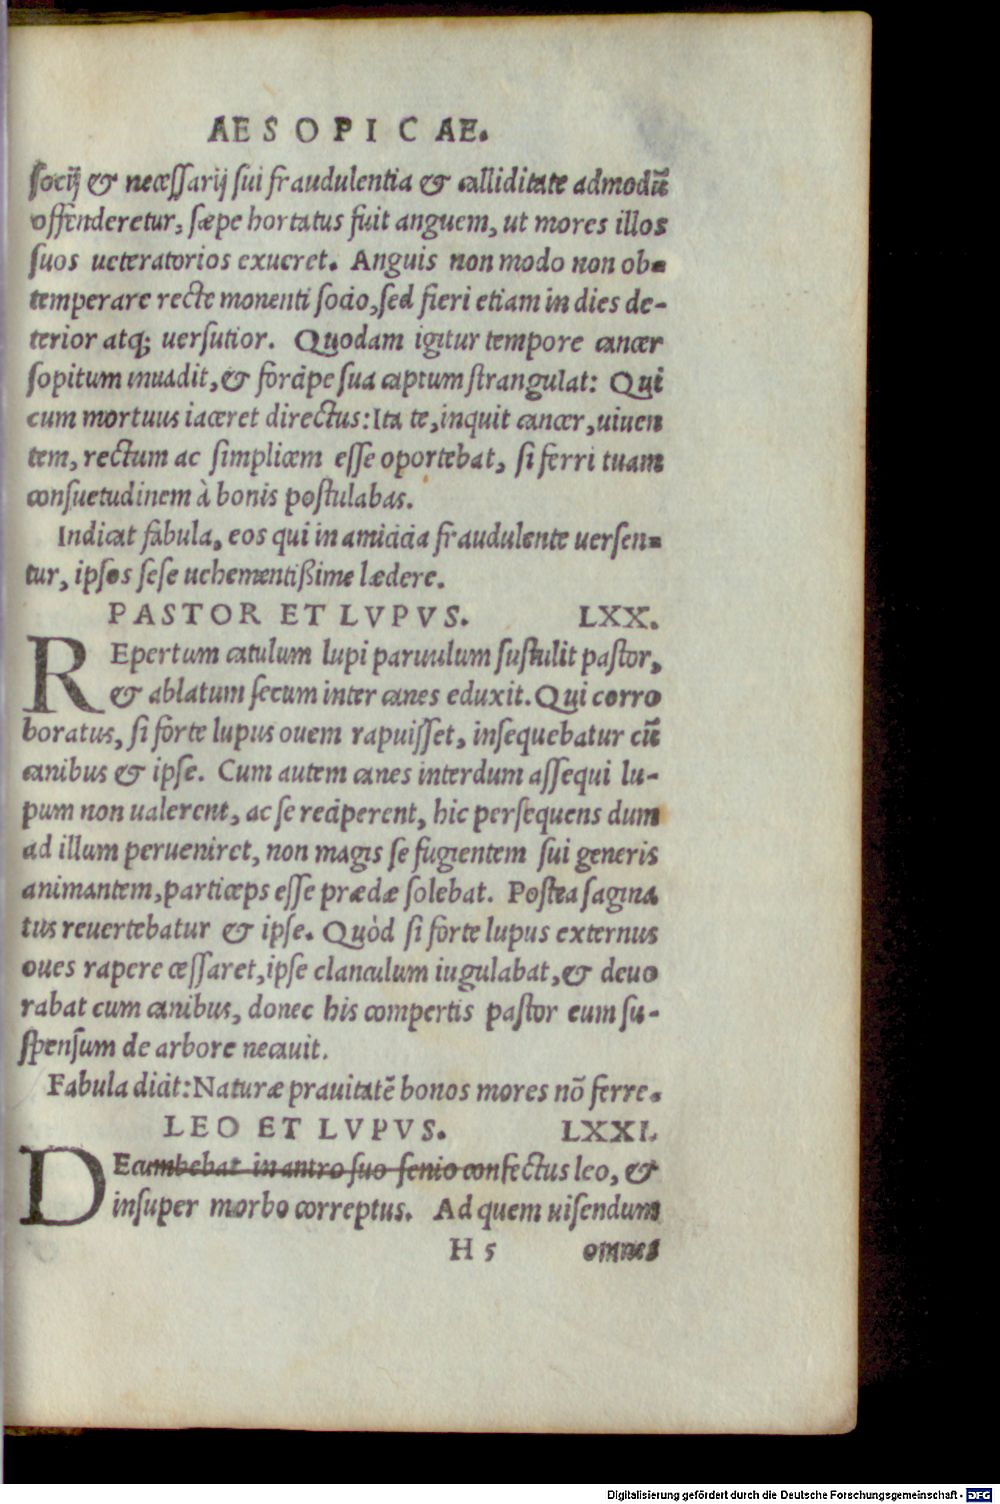 AESOPICAE.
socij & necessarij sui fraudulentia & calliditate admodū
offenderetur, sæpe hortatus fuit anguem, ut mores illos
suos ueteratorios exueret. Anguis non modo non ob-
temperare recte monenti socio, sed fieri etiam in dies de-
terior atq; uersutior. Quodam igitur tempore cancer
sopitum inuadit, & forcipe sua captum strangulat: Qui
cum mortuus iaceret directus: Ita te, inquit cancer, uiuen
tem, rectum ac simplicem esse oportebat, si ferri tuam
consuetudinem à bonis postulabas.
Indicat fabula, eos qui in amicicia fraudulente uersen-
tur, ipsos sese uehementißime lædere.
PASTOR ET LVPVS. LXX.
REpertum catulum lupi paruulum sustulit pastor,
& ablatum secum inter canes eduxit. Qui corro
boratus, si forte lupus ouem rapuisset, insequebatur cū
canibus & ipse. Cum autem canes interdum assequi lu-
pum non ualerent, ac se reciperent, hic persequens dum
ad illum perueniret, non magis se fugientem sui generis
animantem, particeps esse prædæ solebat. Postea sagina
tus reuertebatur & ipse. Quòd si forte lupus externus
oues rapere cessaret, ipse clanculum iugulabat, & deuo
rabat cum canibus, donec his compertis pastor eum su-
spensum de arbore necauit.
Fabula dicit: Naturæ prauitatē bonos mores nō ferre.
LEO ET LVPVS. LXXI.
DEcumbebat in antro suo senio confectus leo, &
insuper morbo correptus. Ad quem uisendum
H 5 omnes
Digitalisierung gefördert durch die Deutsche Forschungsgemeinschaft - DFG